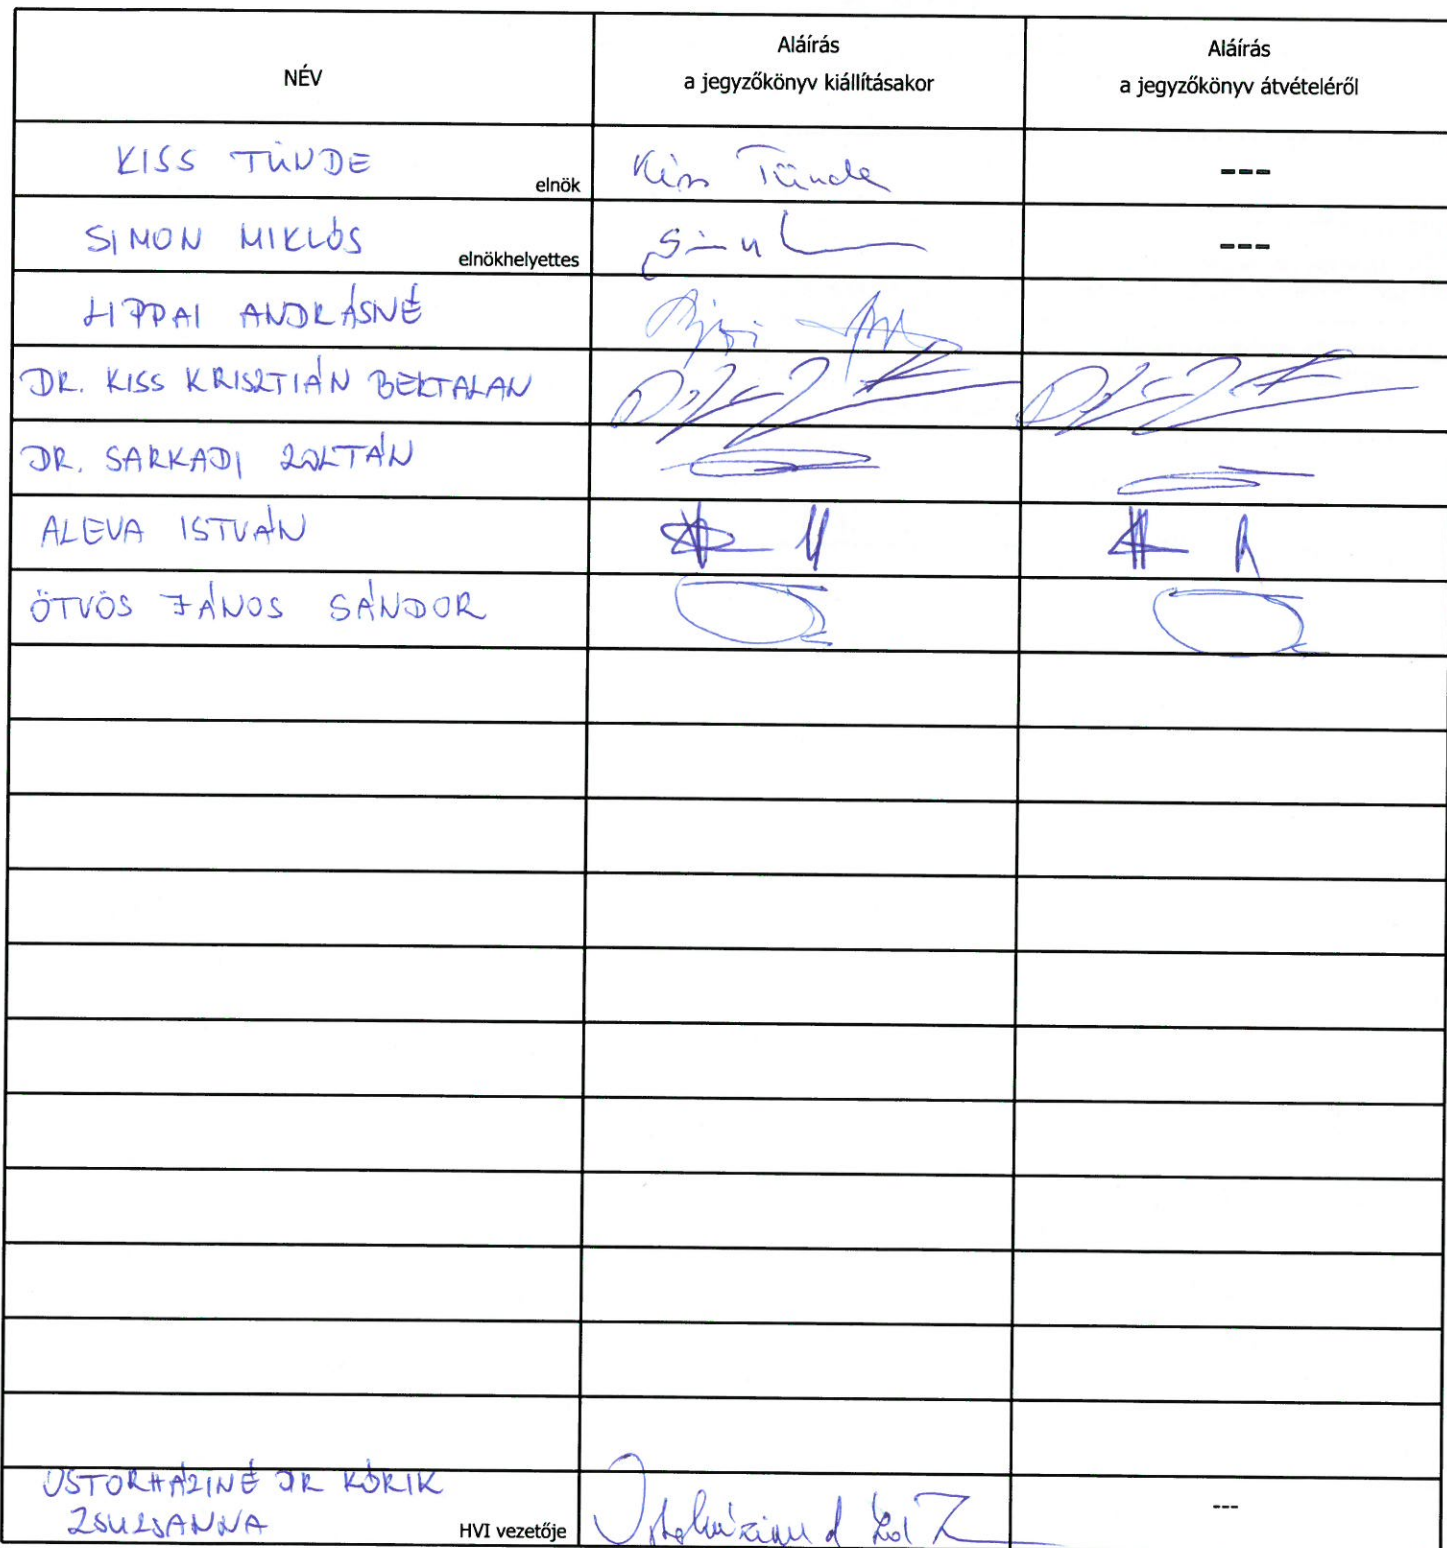 NÉV
Aláírás
a jegyzőkönyv kiállításakor
Aláírás
a jegyzőkönyv átvételéről
KISS TÜNDE
elnök
Kiss Tünde
---
SIMON MIKLÓS
elnökhelyettes
---
LIPPAI ANDRÁSNÉ
DR. KISS KRISZTIÁN BERTALAN
DR. SARKADI ZOLTÁN
ALEVA ISTVÁN
ÖTVÖS JÁNOS SÁNDOR
USTORHÁZINÉ DR KÓRIK
ZSUZSANNA
HVI vezetője
---